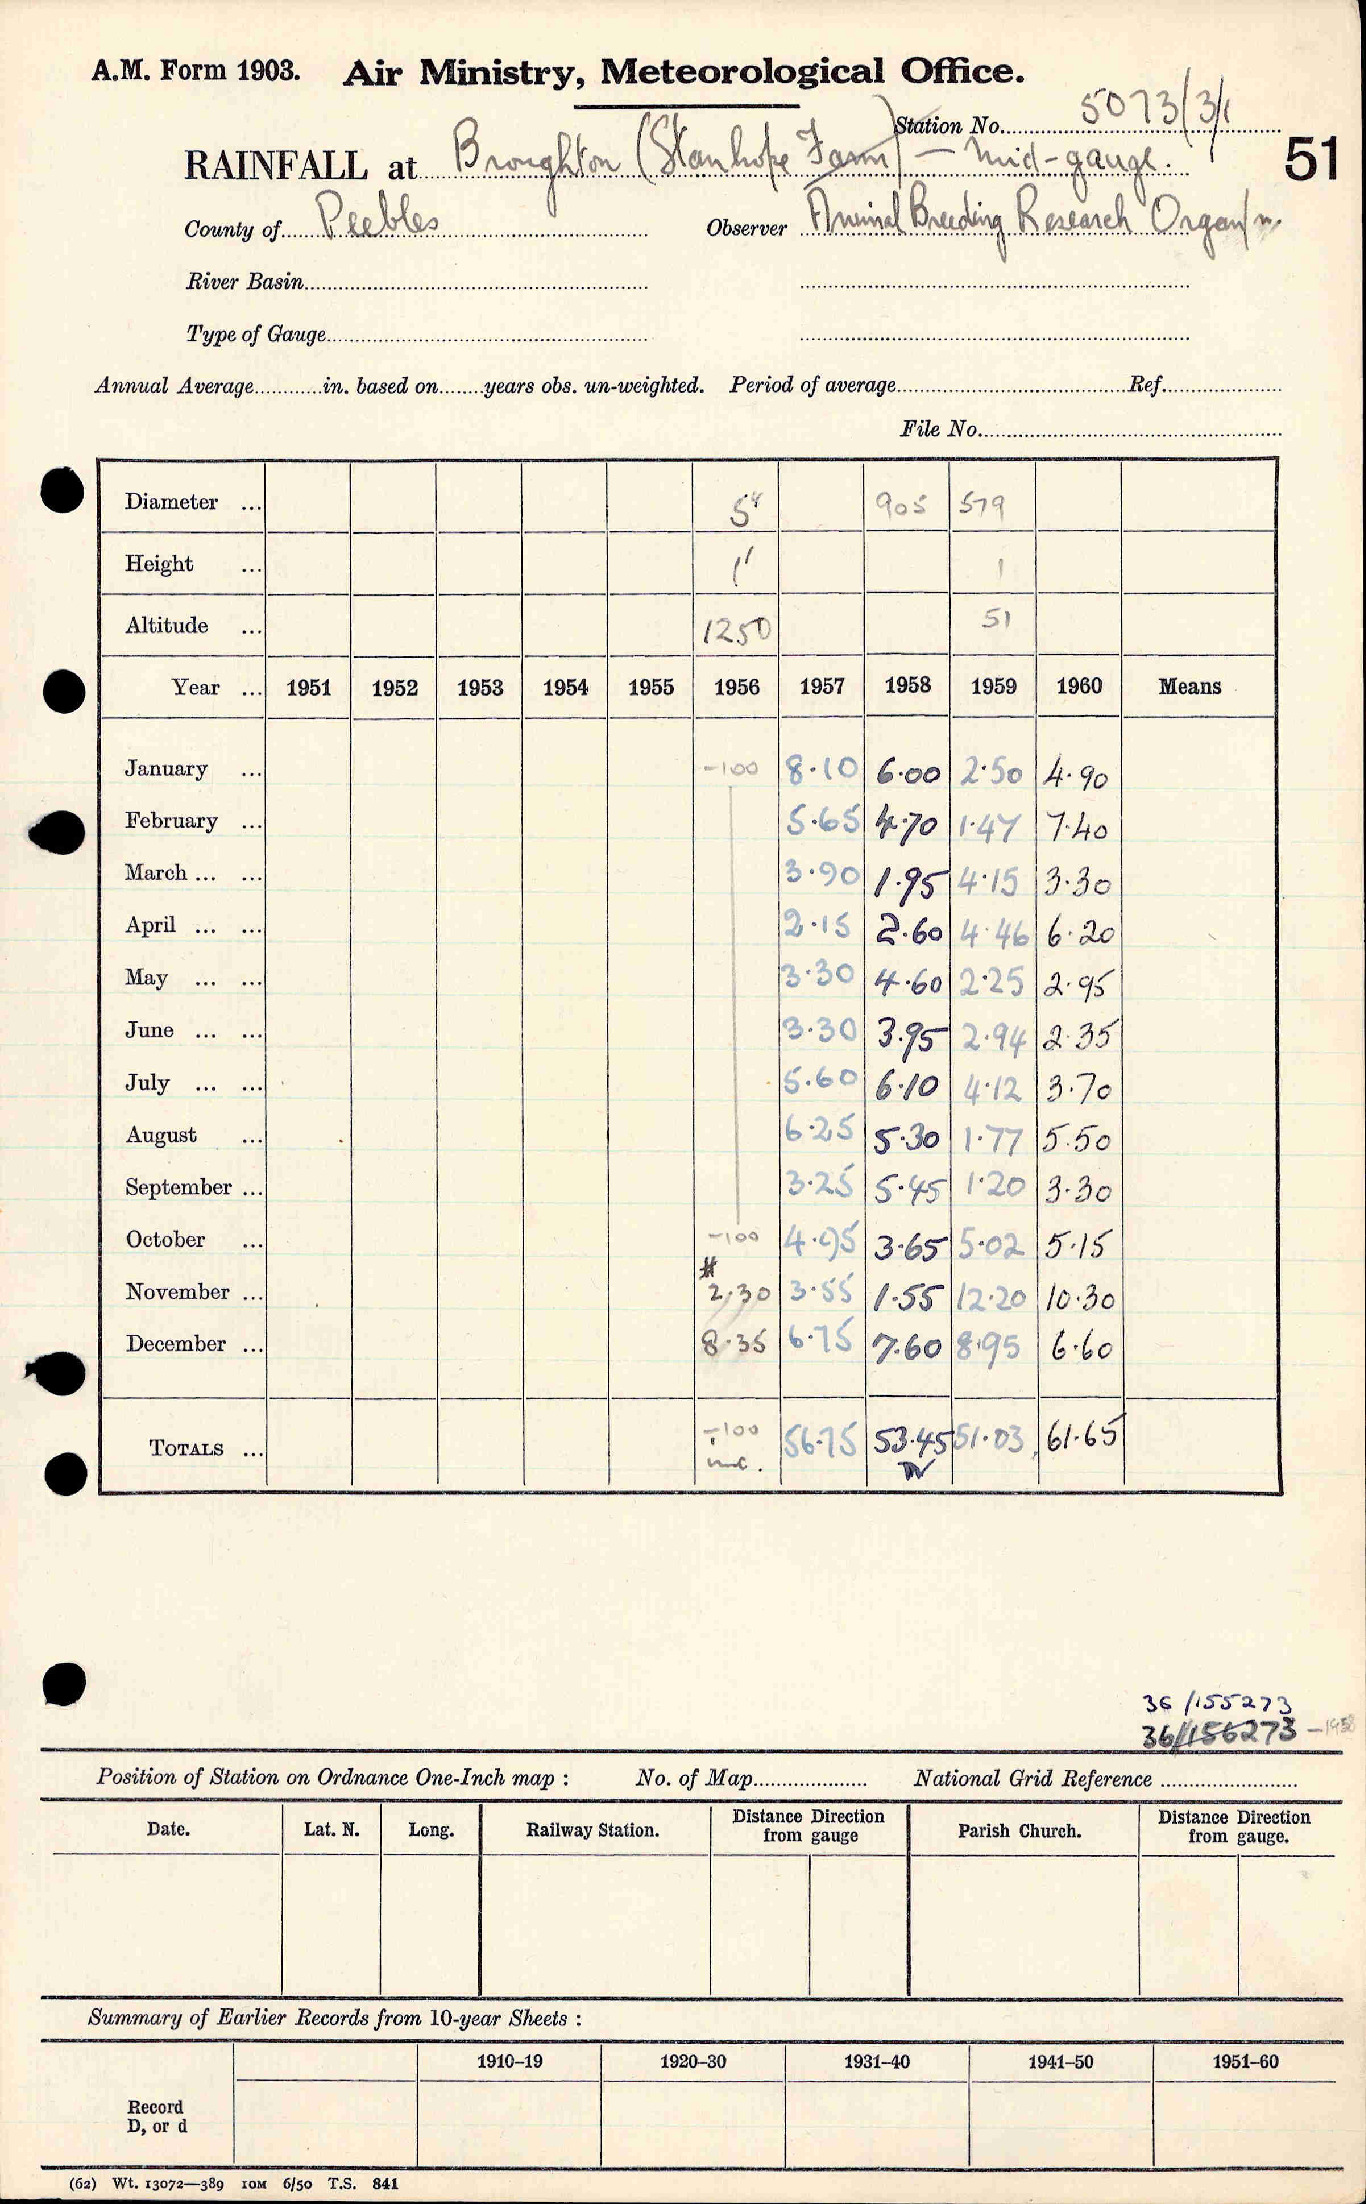 A.M. Form 1903. Air Ministry, Meteorological Office.
Station No. 5073/3/1
RAINFALL at Broughton (Stanhope Farm) — Mid-gauge.
51
County of Peebles Observer Animal Breeding Research Organ/n.
River Basin
Type of Gauge
Annual Average in. based on years obs. un-weighted. Period of average Ref.
File No.
Diameter ... 5" 905 579
Height ... 1' 1
Altitude ... 1250 51
Year ... 1951 1952 1953 1954 1955 1956 1957 1958 1959 1960 Means
January ... -100 8.10 6.00 2.50 4.90
February ... 5.65 4.70 1.47 7.40
March ... ... 3.90 1.95 4.15 3.30
April ... ... 2.15 2.60 4.46 6.20
May ... ... 3.30 4.60 2.25 2.95
June ... ... 3.30 3.95 2.94 2.35
July ... ... 5.60 6.10 4.12 3.70
August ... 6.25 5.30 1.77 5.50
September ... 3.25 5.45 1.20 3.30
October ... -100 4.95 3.65 5.02 5.15
November ... # 2.30 3.55 1.55 12.20 10.30
December ... 8.35 6.75 7.60 8.95 6.60
TOTALS ... -100 inc. 56.75 53.45 51.03 61.65
36/155273
36/156273 -1958
Position of Station on Ordnance One-Inch map : No. of Map National Grid Reference
Date. Lat. N. Long. Railway Station. Distance Direction from gauge Parish Church. Distance Direction from gauge.
Summary of Earlier Records from 10-year Sheets :
1910-19 1920-30 1931-40 1941-50 1951-60
Record
D, or d
(62) Wt. 13072—389 10M 6/50 T.S. 841